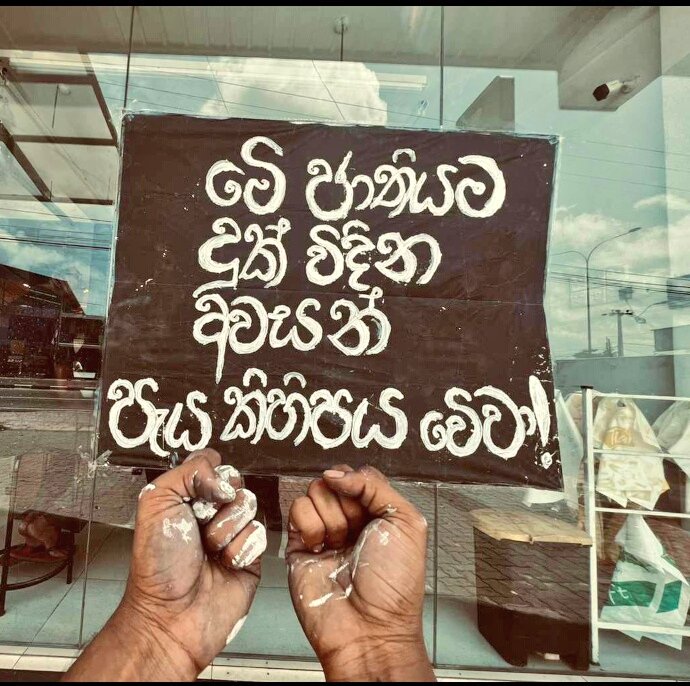 මේ ජාතියම
දුක් විදින
අවසන්
පැය කිහිපය වේවා!